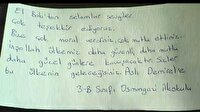 El Bab'tan selamlar sevgiler.
Çok teşekkür ediyoruz.
Bize çok moral verdiniz, çok mutlu ettiniz.
İnşallah ülkemiz daha güvenli, daha mutlu
daha güzel günlere kavuşacaktır. Sizler
bu ülkenin geleceğisiniz. Aslı Demirel'e
3-B Sınıfı Osmangazi İlkokulu